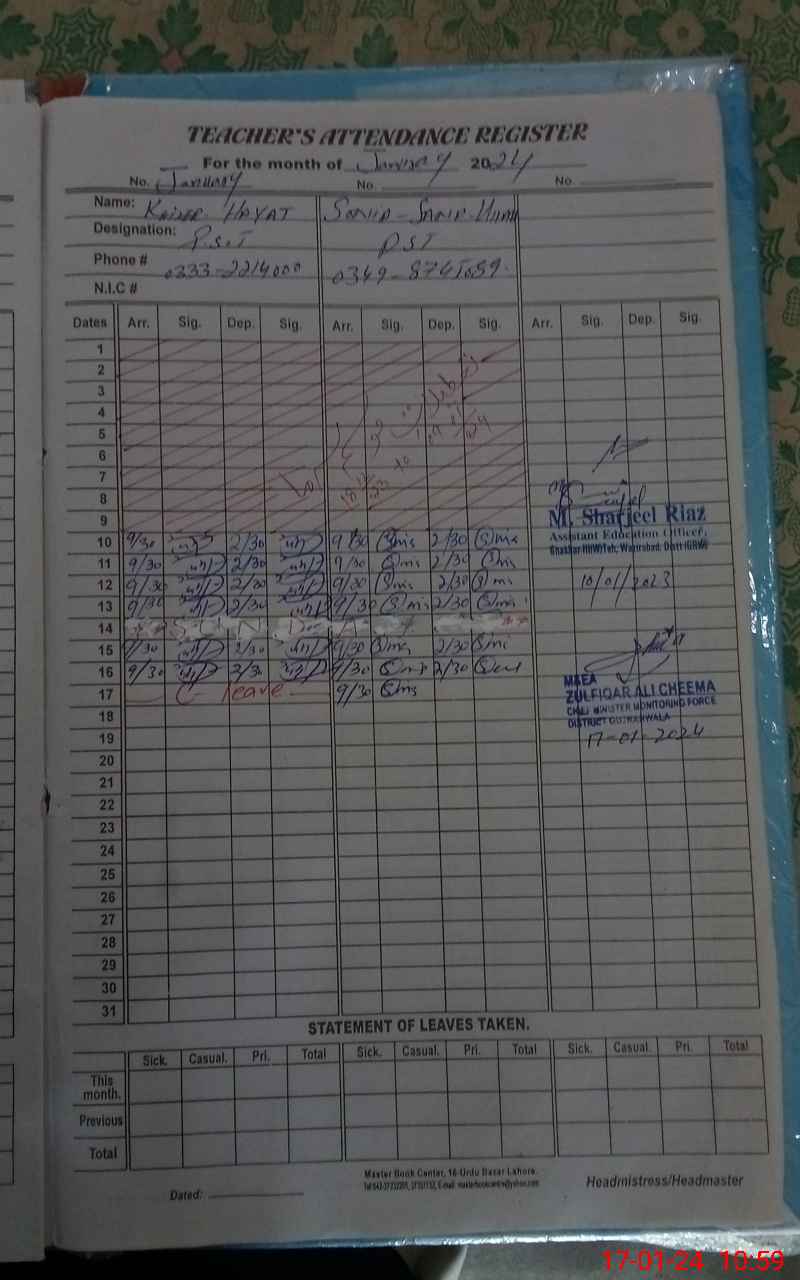 TEACHER'S ATTENDANCE REGISTER
For the month of January 2024
No. January No. No.
Name: Kaiser Hayat Sonia-Samir-
Designation: P.S.T P.S.T
Phone # 0333-2214000 0349-8745059
N.I.C #
Dates Arr. Sig. Dep. Sig. Arr. Sig. Dep. Sig. Arr. Sig. Dep. Sig.
1
2
3
4
5
6
7
8
9
18/12/23 to
M. Sharjeel Riaz
Assistant Education Officer,
10 9/30 2/30 9/30 2/30
11 9/30 2/30 9/30 2/30
12 9/30 2/30 9/30 2/30
10/01/2023
13 9/30 2/30 9/30 2/30
14 SUNDAY
15 9/30 2/30 9/30 2/30
16 9/30 2/30 9/30 2/30
17 C- leave 9/30
MEA
ZULFIQAR ALI CHEEMA
CHIEF MINISTER MONITORING FORCE
DISTRICT GUJRANWALA
17-01-2024
18
19
20
21
22
23
24
25
26
27
28
29
30
31
STATEMENT OF LEAVES TAKEN.
Sick. Casual. Pri. Total Sick. Casual. Pri. Total Sick. Casual. Pri. Total
This month.
Previous
Total
Master Book Center, 16-Urdu Bazar Lahore.
Dated: Headmistress/Headmaster
17-01-24 10:59